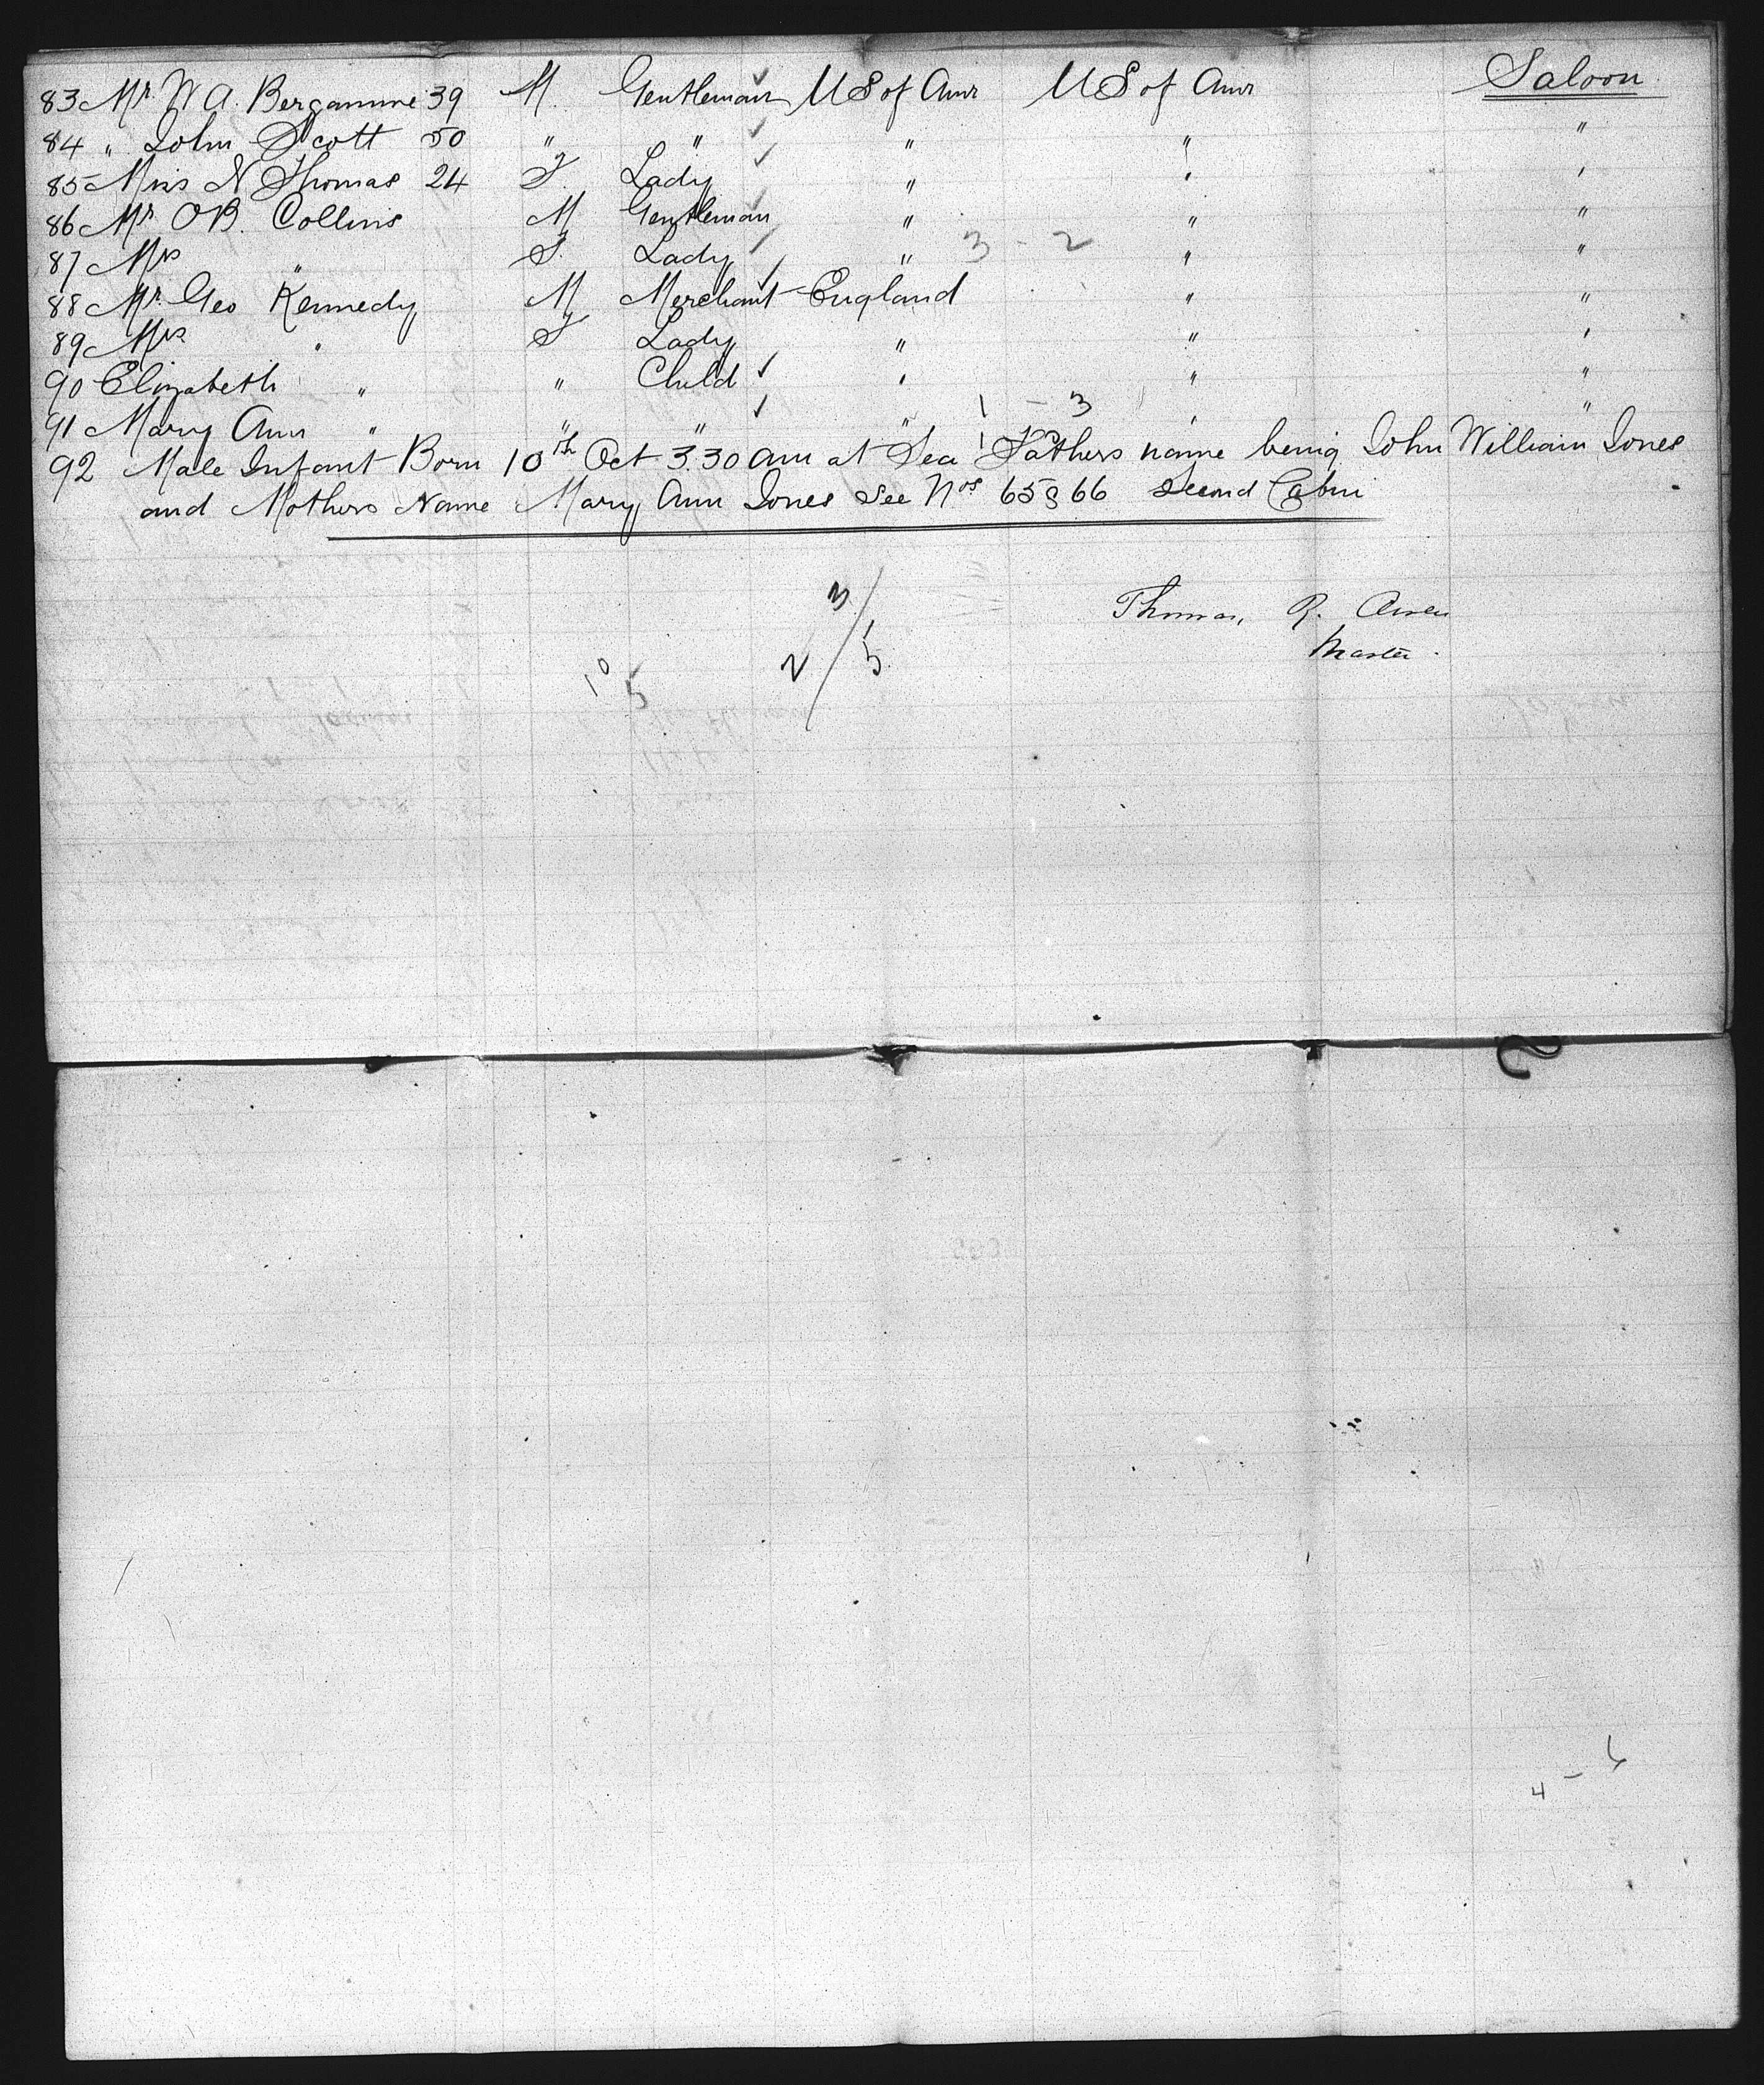 83 Mr. W A. Bergamine 39 M. Gentleman U S of Amr U S of Amr Saloon
84 " John Scott 50 " " " " "
85 Miss N Thomas 24 F. Lady " " "
86 Mr. O B. Collins M Gentleman " " "
87 Mrs " F. Lady " 3 - 2 " "
88 Mr. Geo Kennedy M Merchant England " "
89 Mrs " F Lady " " "
90 Elizabeth " " Child " " "
91 Mary Ann " " " " 1 - 3 " "
92 Male Infant Born 10th Oct 3.30 am at Sea Fathers name being John William Jones
and Mothers Name Mary Ann Jones See Nos 65 & 66 Second Cabin
3
Thomas. R.
2 / 5
Master.
10
5
4 -